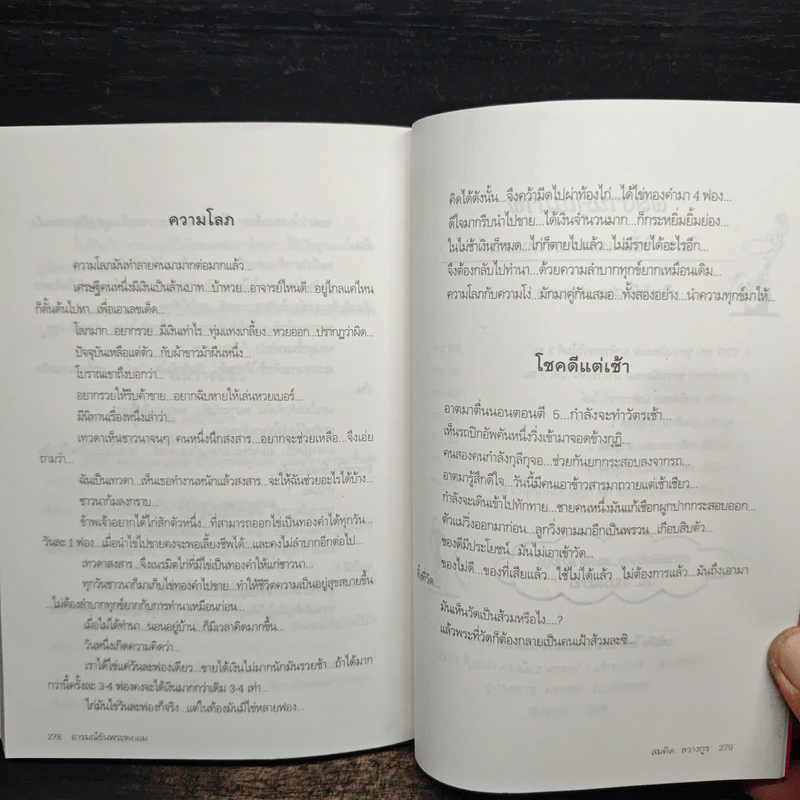 ความโลภ
ความโลภมันทำลายคนมามากต่อมากแล้ว...
เศรษฐีคนหนึ่งมีเงินเป็นล้านบาท...บ้าหวย...อาจารย์ไหนดี...อยู่ไกลแค่ไหน
ก็ดั้นด้นไปหา...เพื่อเอาเลขเด็ด...
โลภมาก...อยากรวย...มีเงินเท่าไร...ทุ่มแทงเกลี้ยง...หวยออก...ปรากฏว่าผิด...
ปัจจุบันเหลือแต่ตัว...กับผ้าขาวม้าผืนหนึ่ง...
โบราณเขาถึงบอกว่า...
อยากรวยให้รีบค้าขาย...อยากฉิบหายให้เล่นหวยเบอร์...
มีนิทานเรื่องหนึ่งเล่าว่า...
เทวดาเห็นชาวนาจนๆ คนหนึ่งนึกสงสาร...อยากจะช่วยเหลือ...จึงเอ่ย
ถามว่า...
ฉันเป็นเทวดา...เห็นเธอทำงานหนักแล้วสงสาร...จะให้ฉันช่วยอะไรได้บ้าง...
ชาวนาก้มลงกราบ...
ข้าพเจ้าอยากได้ไก่สักตัวหนึ่ง...ที่สามารถออกไข่เป็นทองคำได้ทุกวัน...
วันละ 1 ฟอง...เมื่อนำไข่ไปขายคงจะพอเลี้ยงชีพได้...และคงไม่ลำบากอีกต่อไป...
เทวดาสงสาร...จึงเนรมิตไก่ที่มีไข่เป็นทองคำให้แก่ชาวนา...
ทุกวันชาวนาก็มาเก็บไข่ทองคำไปขาย...ทำให้ชีวิตความเป็นอยู่สุขสบายขึ้น
...ไม่ต้องลำบากทุกข์ยากกับการทำนาเหมือนก่อน...
เมื่อไม่ได้ทำนา...นอนอยู่บ้าน...ก็มีเวลาคิดมากขึ้น...
วันหนึ่งเกิดความคิดว่า...
เราได้ไข่แค่วันละฟองเดียว...ขายได้เงินไม่มากนักมันรวยช้า...ถ้าได้มาก
กว่านี้ครั้งละ 3-4 ฟองคงจะได้เงินมากกว่าเดิม 3-4 เท่า...
ไก่มันไข่วันละฟองก็จริง...แต่ในท้องมันมีไข่หลายฟอง...
278 อารมณ์ขันพระพยอม
คิดได้ดังนั้น...จึงคว้ามีดไปผ่าท้องไก่...ได้ไข่ทองคำมา 4 ฟอง...
ดีใจมากรีบนำไปขาย...ได้เงินจำนวนมาก...ก็กระหยิ่มยิ้มย่อง...
ในไม่ช้าเงินก็หมด...ไก่ก็ตายไปแล้ว...ไม่มีรายได้อะไรอีก...
จึงต้องกลับไปทำนา...ด้วยความลำบากทุกข์ยากเหมือนเดิม...
ความโลภกับความโง่...มักมาคู่กันเสมอ...ทั้งสองอย่าง...นำความทุกข์มาให้...
โชคดีแต่เช้า
อาตมาตื่นนอนตอนตี 5...กำลังจะทำวัตรเช้า...
เห็นรถปิกอัพคันหนึ่งวิ่งเข้ามาจอดข้างกุฏิ...
คนสองคนกำลังกุลีกุจอ...ช่วยกันยกกระสอบลงจากรถ...
อาตมารู้สึกดีใจ...วันนี้มีคนเอาข้าวสารมาถวายแต่เช้าเชียว...
กำลังจะเดินเข้าไปทักทาย...ชายคนหนึ่งมันแก้เชือกผูกปากกระสอบออก...
ตัวแม่วิ่งออกมาก่อน...ลูกวิ่งตามมาอีกเป็นพรวน...เกือบสิบตัว...
ของดีมีประโยชน์...มันไม่เอาเข้าวัด...
ของไม่ดี...ของที่เสียแล้ว...ใช้ไม่ได้แล้ว...ไม่ต้องการแล้ว...มันถึงเอามา
ทิ้งที่วัด...
มันเห็นวัดเป็นส้วมหรือไง....?
แล้วพระที่วัดก็ต้องกลายเป็นคนเฝ้าส้วมละซิ...
สมคิด ลวางกูร 279